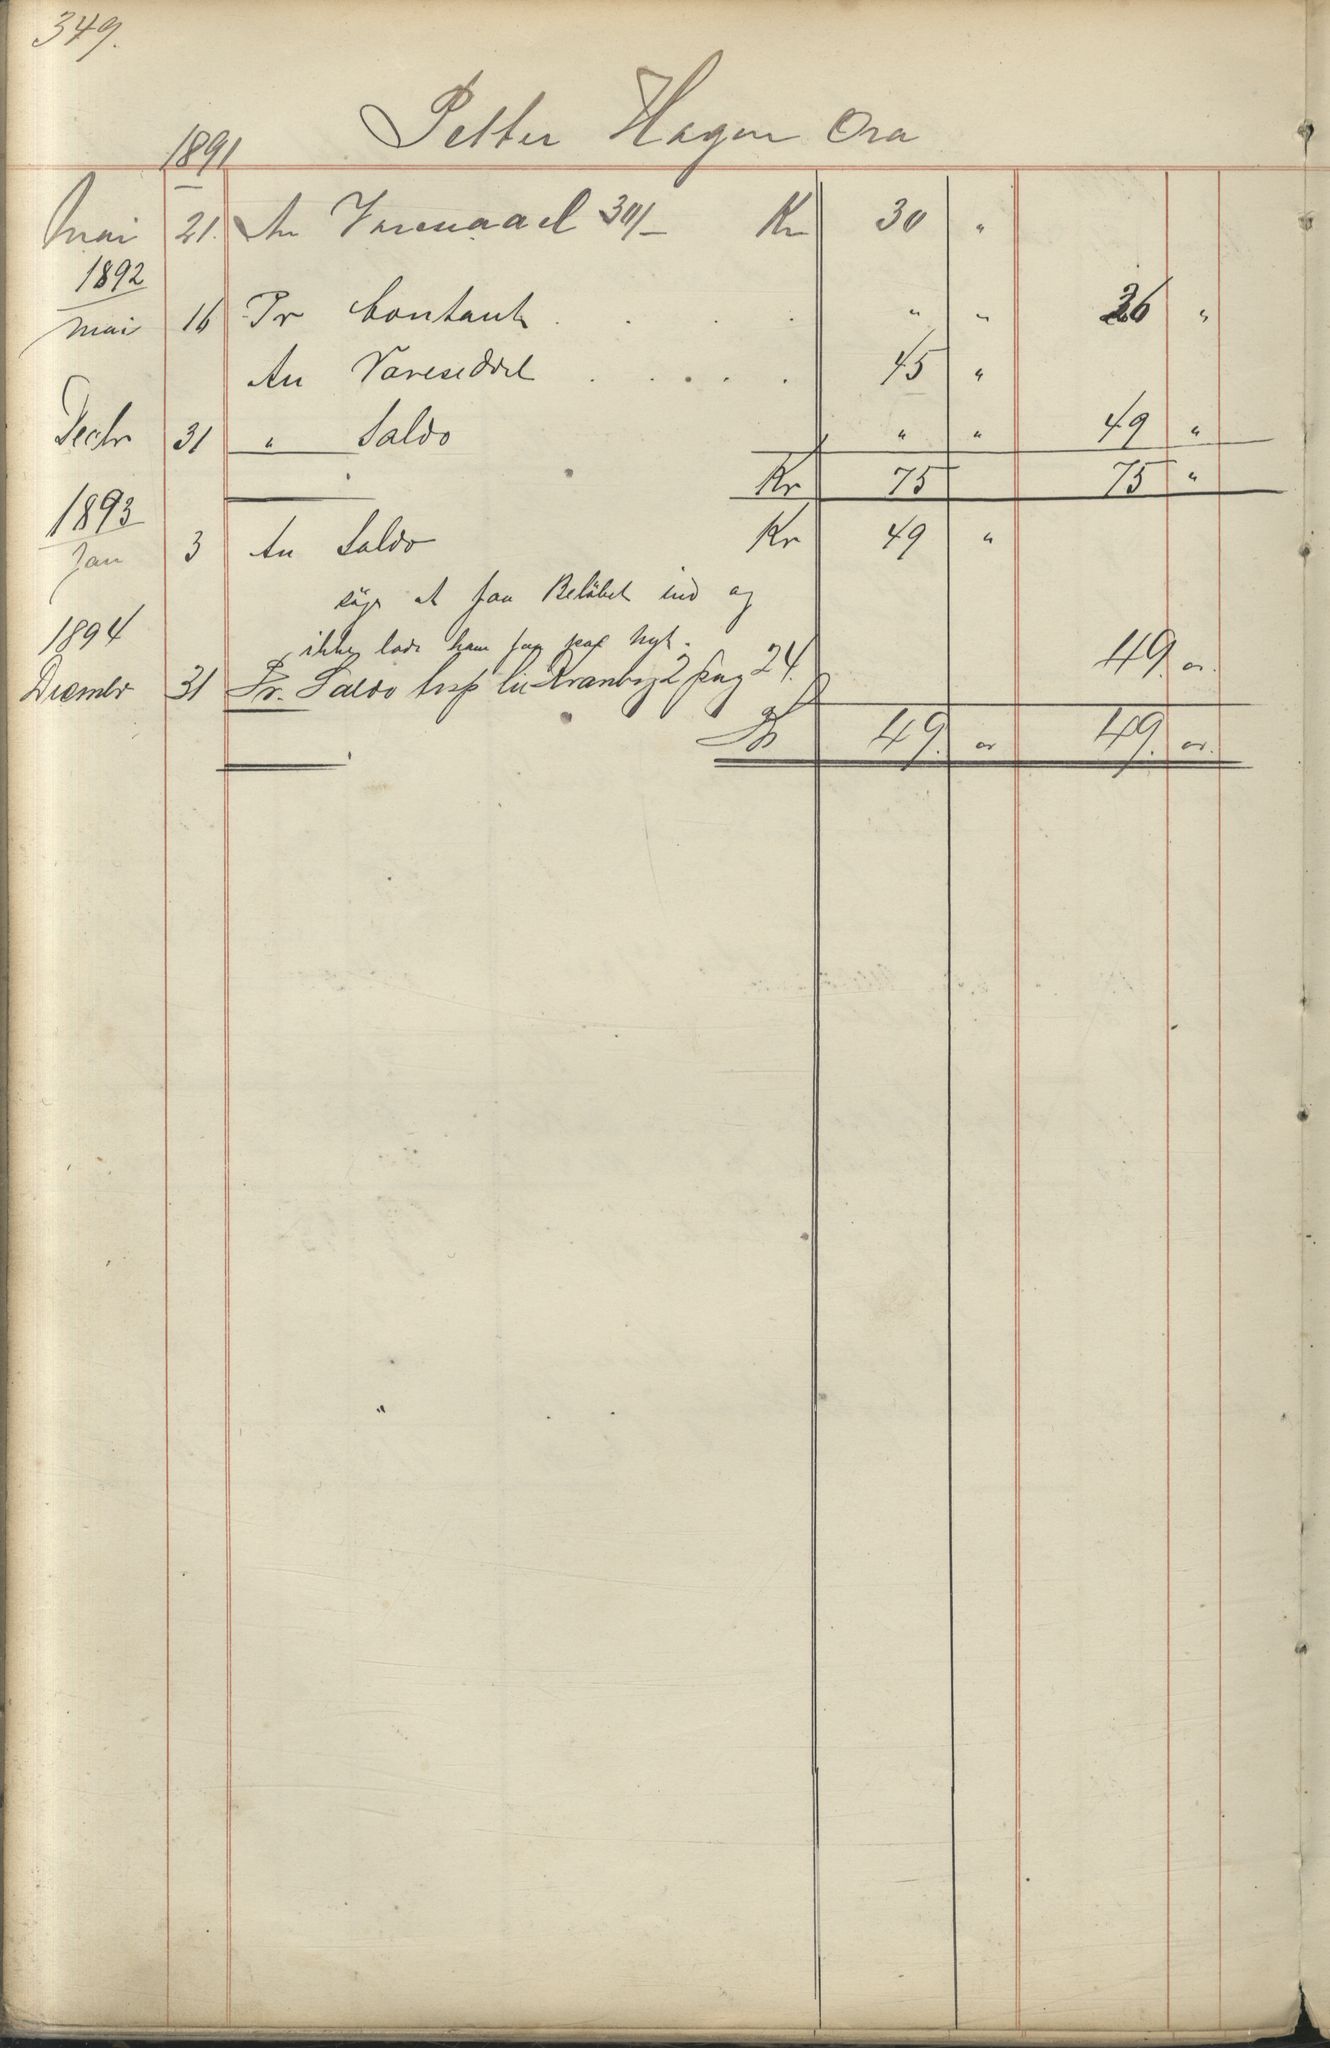 349.
Petter Hagen Ora
1891
Mai 21. An Varenaael 30/- Kr 30 "
1892
Mai 16 Pr Contant . . . . " " 26 "
An Vareseddel . . . . . 45 "
Decbr 31 " Saldo " " 49 "
Kr 75 75 "
1893
Jan 3 An Saldo Kr 49 "
søge at faa Beløbet ind og
1894
ikke lade ham faa paa nyt.
Decembr 31 Pr. Saldo trsp til Kranbog 2 pag 24. 49. "
Kr 49. " 49. "